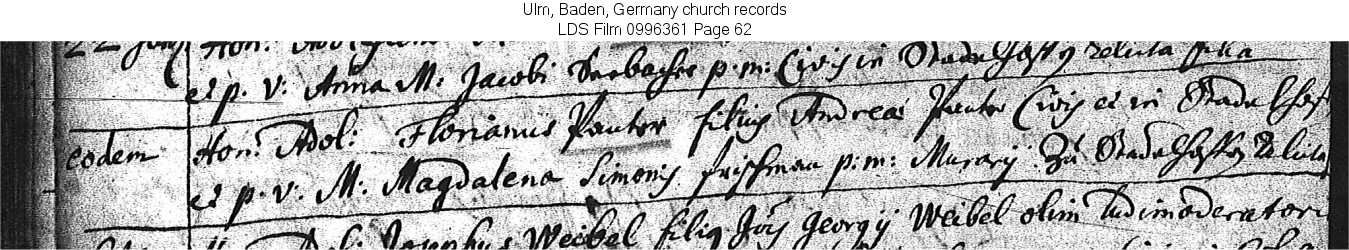 Ulm, Baden, Germany church records
LDS Film 0996361 Page 62
22 Hon:
et p. v: Anna M: Jacobi Seebacher p. m: Civis in Stadelhoffen relicta filia
eodem Hon: Adol: Florianus Panter filius Andreae Panter Civis et in Stadelhoff
et p. v: M: Magdalena Simonis frischman p: m: Murarij Zu Stadelhoffen relicta
Josephus Weibel filiq Jois Georgij Weibel olim Ludimoderatori